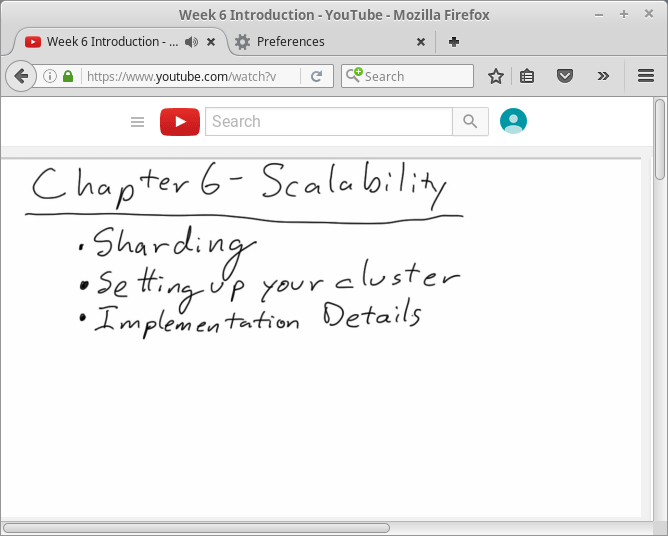 Week 6 Introduction - YouTube - Mozilla Firefox
Week 6 Introduction - ...
Preferences
https://www.youtube.com/watch?v
Search
Search
Chapter 6 - Scalability
• Sharding
• Setting up your cluster
• Implementation Details